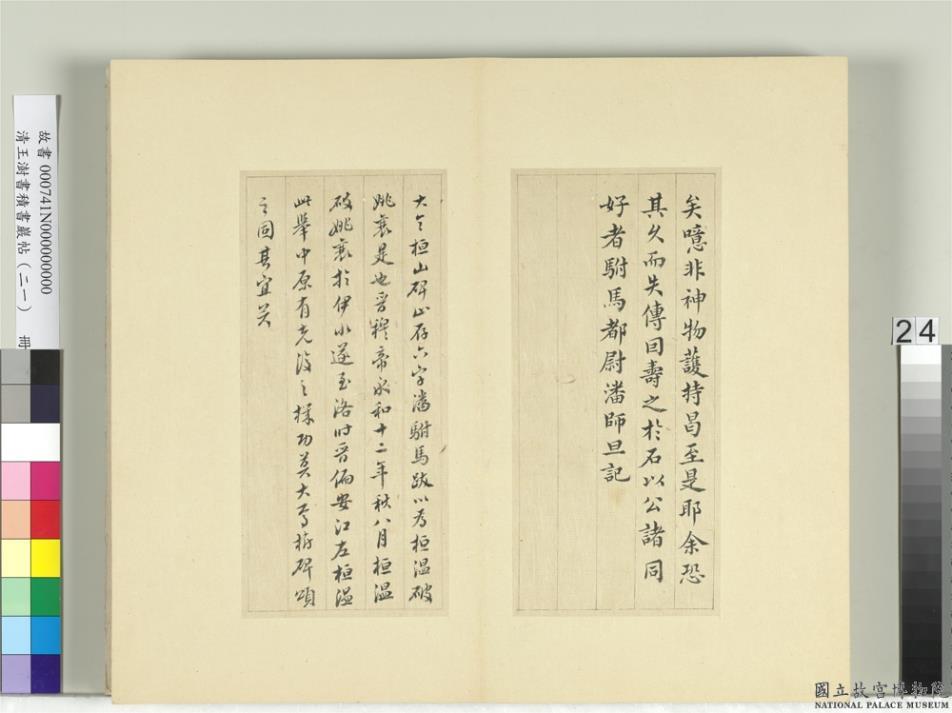 矣噫非神物護持曷至是耶余恐
其久而失傳因壽之於石以公諸同
好者駙馬都尉潘師旦記
大令桓山碑止存六字潘駙馬跋以為桓溫破
姚襄是也晉穆帝永和十二年秋八月桓溫
破姚襄於伊水遂至洛時晉偏安江左桓溫
此舉中原有光復之機功莫大焉樹碑頌
之固其宜矣
故書 000741N000000000
清王澍書積書巖帖（二一） 冊
24
國立故宮博物院
NATIONAL PALACE MUSEUM